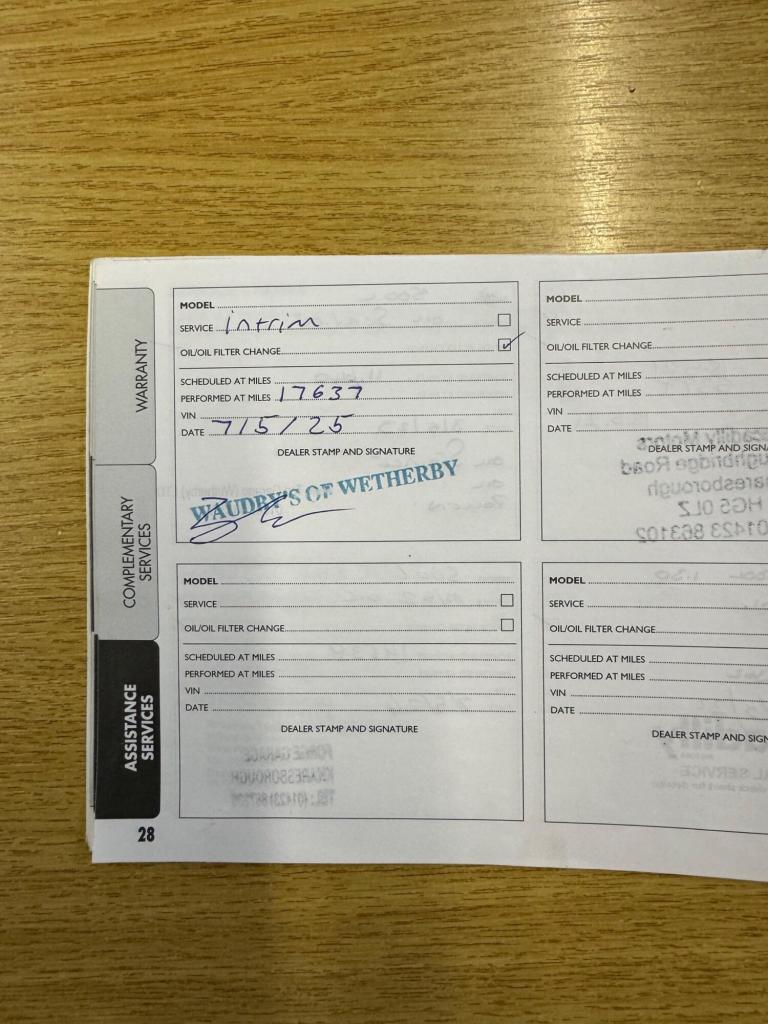 WARRANTY
COMPLEMENTARY
SERVICES
ASSISTANCE
SERVICES
28
MODEL
SERVICE intrim
OIL/OIL FILTER CHANGE
SCHEDULED AT MILES
PERFORMED AT MILES 17637
VIN
DATE 7/5/25
DEALER STAMP AND SIGNATURE
WAUDBY'S OF WETHERBY
MODEL
SERVICE
OIL/OIL FILTER CHANGE
SCHEDULED AT MILES
PERFORMED AT MILES
VIN
DATE
DEALER STAMP AND SIGNATURE
MODEL
SERVICE
OIL/OIL FILTER CHANGE
SCHEDULED AT MILES
PERFORMED AT MILES
VIN
DATE
DEALER STAMP AND
MODEL
SERVICE
OIL/OIL FILTER CHANGE
SCHEDULED AT MILES
PERFORMED AT MILES
VIN
DATE
DEALER STAMP AND